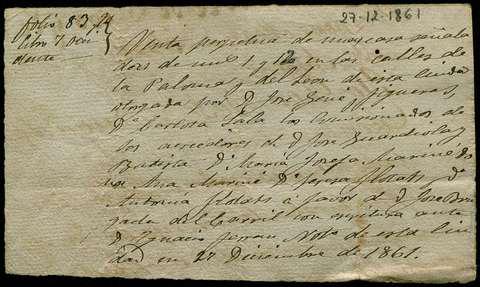 folio 83
libro 7 Occi
dente
27-12-1861
Venta perpetua de una casa señala
da de num. 1 y 12 en las calles de
la Paloma y del Leon de esta ciudad
otorgada por D. Jose Gené Figueras,
Da. Carlota Sala los comisionados de
los acreedores de D. Jose Guardiola y
Da. Maria Josefa Mariné
Ana Mariné Da. Teresa Da.
Antonia á favor de D. Jose
del Carril con escritura ante
D. Ignacio Notо. de esta Ciu
dad en 27 Diciembre de 1861.